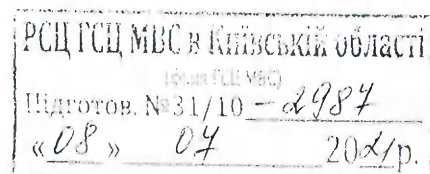 РСЦ ГСЦ МВС в Київській області
(філія ГСЦ МВС)
Підготов. № 31/10 - 2987
«08» 07 2021р.